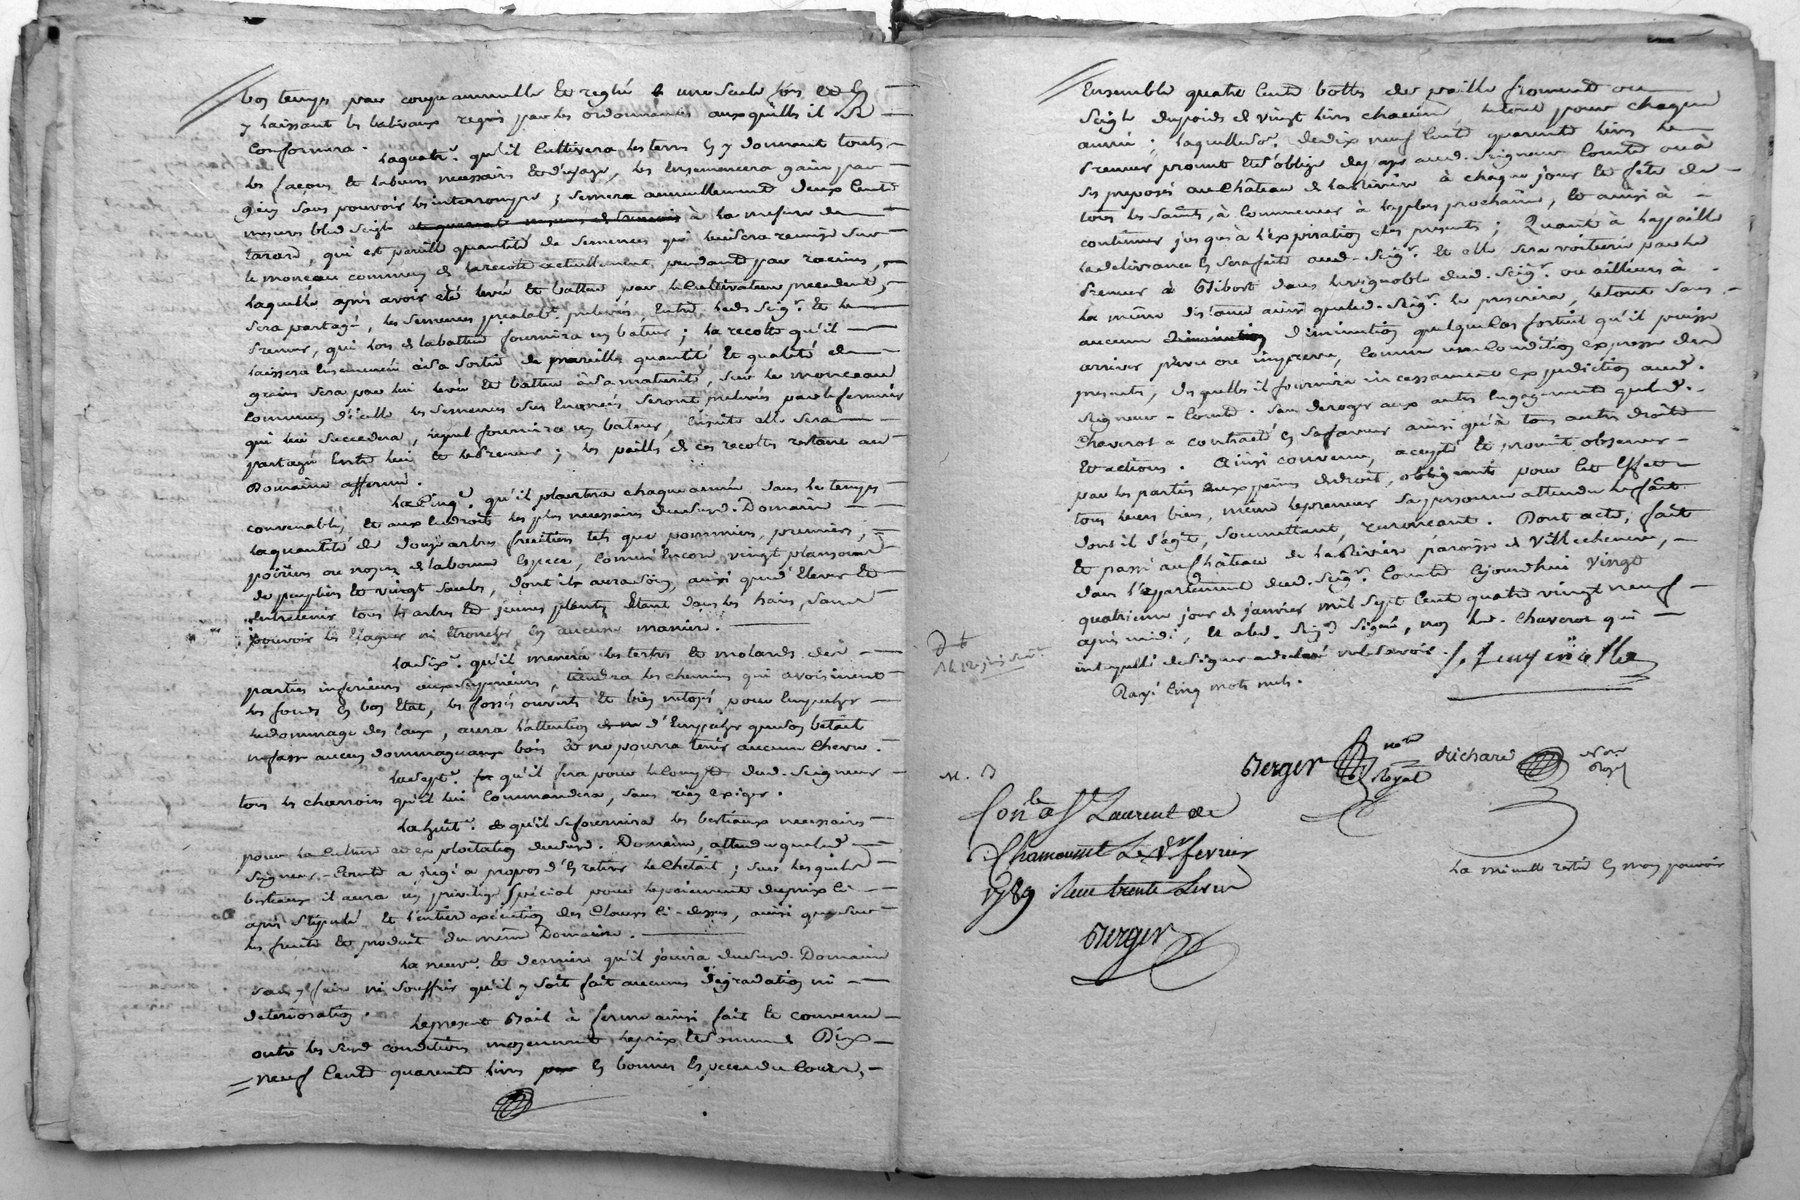 bon temps par coupe annuelle et reglée & une seule fois et en
y laissant les baliveaux requis par les ordonnances auxquelles il se
conformera.
La quatr.e qu'il cultivera les terres en y donnant touts
les façons et labeurs necessairs et d'usage, les ensemencera gain par
gain sans pouvoir les interrompre; semera annuellement deux cents
mesures bled seigle à la mesure de
Tarare, qui est pareille quantité de semences qui lui sera remise sur
le monceau commun de la recolte actuellement pendante par racines,
laquelle après avoir été levée et battue par le cultivateur precedent,
sera partagé, les semences prealab.t prelevées, entre led. Seig.r et le
Preneur, qui lors de la battue fournira un bateur; la recolte qu'il
laissera ensemencée à sa sortie de pareille quantité et qualité de
grains sera par lui levée et battue à sa maturité, sur le monceau
commun d'icelle les semences sus enoncés seront prelevés par le fermier
qui lui succedera, lequel fournira un bateur, ensuite elle sera
partagée entre lui et le Preneur; les pailles de ces recoltes restant au
Domaine affermé.
La cinq.e qu'il plantera chaque année dans le temps
convenable, et aux endroits les plus necessaires dudit Domaine
la quantité de douze arbres fruitiers tels que pommiers, pruniers,
poiriers ou noyers de la bonne espece, comme encore vingt plansons
de peupliers et vingt saules, dont il aura soin, ainsi que d'elever et
entretenir tous les arbres et jeunes plantes étant dans les haies, sans
pouvoir les élaguer ni étroncher en aucune maniere.
La six.e qu'il menera les terres et molards des
parties inferieures aux superieures, tiendra les chemins qui avoisinent
les fonds en bon état, les fossés ouverts et bien nettoyés pour empecher
le dommage des eaux, aura l'attention d'empecher que son bétail
ne fasse aucun dommage aux bois et ne pourra tenir aucune chevre.
La sept.e qu'il fera pour le compte dud. Seigneur
tous les charrois qu'il lui commandera, sans rien exiger.
La huit.e qu'il se fournira les bestiaux necessaires
pour la culture et exploitation dud. Domaine, attendu que led.
Seigneur-Comte a jugé a propos d'en retirer le chetail; sur lesquels
bestiaux il aura un privilege special pour le paiement du prix ci
après stipulé et l'entiere execution des clauses ci-dessus, ainsi que sur
les fruits et produit du même Domaine.
La neuv.e et derniere qu'il jouira dud. Domaine
sans y faire ni souffrir qu'il y soit fait aucunes dégradation ni
deterioration.
Le present Bail à ferme ainsi fait et convenu
outre les susd. conditions moyennant le prix et somme de Dix
neuf cents quarente livres en bonnes especes du cours,
Ensemble quatre cents bottes de paille froment ou
seigle du poids de vingt livres chacune, le tout pour chaque
année; laquelle so.e de dix neuf cents quarente livres le
Preneur promet et s'oblige de payer aud. Seigneur Comte ou à
ses preposés au Château de la Riviere à chaque jour et fête de
tous les Saints, à commencer à la plus prochaine, et ainsi à
continuer jusqu'à l'expiration des presentes; Quant à la paille
la delivrance en sera faite aud. Seig.r et elle sera voiturée par le
Preneur à Bibost dans le vignoble dud. Seig.r ou ailleurs à
la même distance ainsi que led. Seig.r le prescrira, le tout sans
aucune diminution quelque cas fortuit qu'il puisse
arriver prevu ou imprevu, comme une condition expresse des
presentes, desquelles il fournira incessament expedition aud.
Seigneur-Comte. Sans deroger aux autres engagements que led.
Chaverot a contracté en sa faveur ainsi qu'à tous autres droits
et actions. Ainsi convenu, accepté et promit observer
par les parties aux peines de droit, obligeants pour cet effet
tous leurs biens, même le preneur sa personne attendu le fait
dont il s'agit, soumettant, renonçant. Dont acte, fait
et passé au Château de la Riviere paroisse de Villechenève,
dans l'apartement dud. Seig.r Comte cejourdhui vingt
quatrieme jour de janvier mil sept cent quatre vingt neuf
après midi, et a led. Seig.r signé, non led. Chaverot qui
interpellé de signer a declaré ne le savoir.
Rayé cinq mots nuls.
Berger not.re Royal
Richard Not.re Royal
Con.lé a St Laurent de
Chamousset le 1.er fevrier
1789 Reçu trente livres
Berger
La minutte restée en mon pouvoir